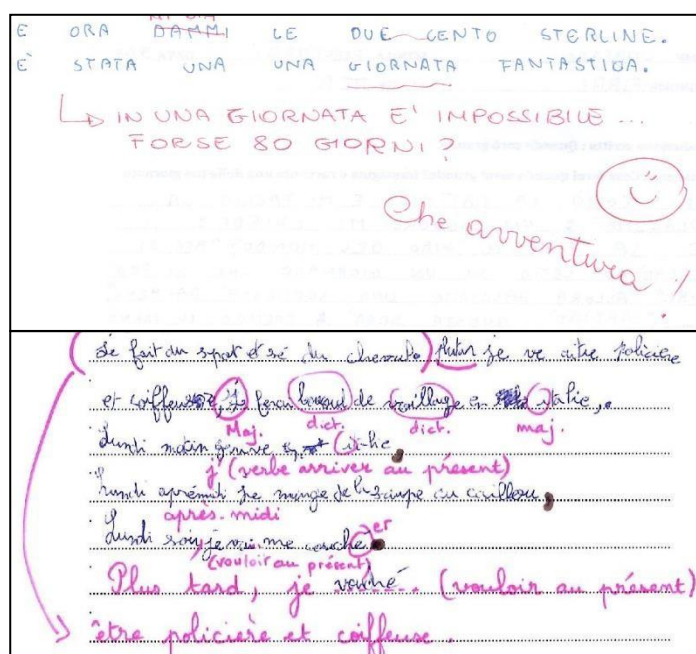 E ORA DAMMI LE DUE CENTO STERLINE.
È STATA UNA UNA GIORNATA FANTASTICA.
IN UNA GIORNATA E' IMPOSSIBILE...
FORSE 80 GIORNI?
Che avventura!
fait du sport et sé du chevale) futur je ve être policière
et coiffeuse, je ferau de en italie,.
Maj. dict. dict. maj.
Lundi matin italie
j' (verbe arriver au présent)
Lundi aprémidi je mange de la soupe au caillou,
après-midi
Lundi soir, je vai me couche er
(vouloir au présent)
Plus tard, je (vouloir au présent)
être policière et coiffeuse.